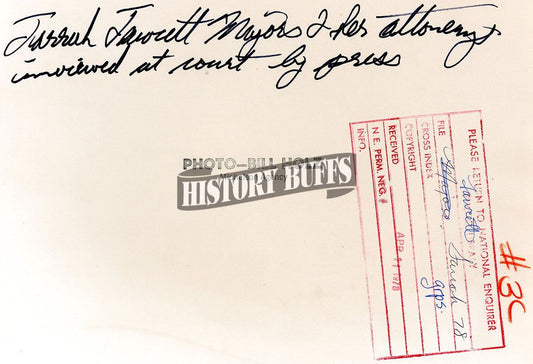 Farrah Fawcett Majors & her attorneys
inviewed at court by press
PHOTO—BILL HOLZ
Agency
HISTORY BUFFS
PLEASE RETURN TO NATIONAL ENQUIRER
FILE Fawcett, Farrah 78
CROSS INDEX grps.
COPYRIGHT
RECEIVED APR 11 1978
N.E. PERM. NEG. #
INFO.
#3C